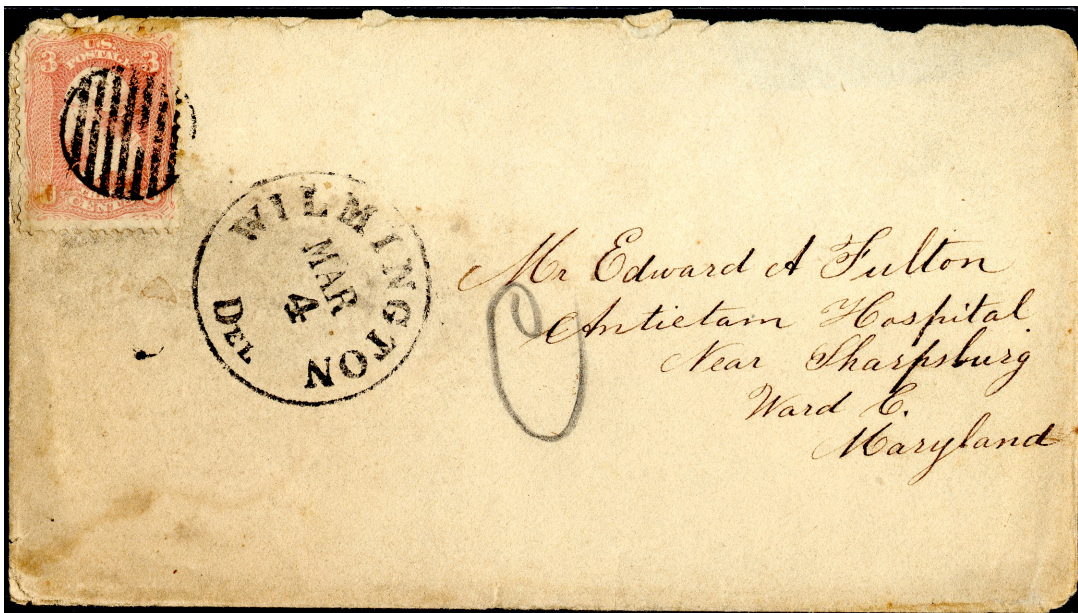 U.S.
POSTAGE
3 3
CENTS
WILMINGTON
MAR
4
DEL
Mr Edward A Fulton
Antietam Hospital
Near Sharpsburg
Ward C.
Maryland